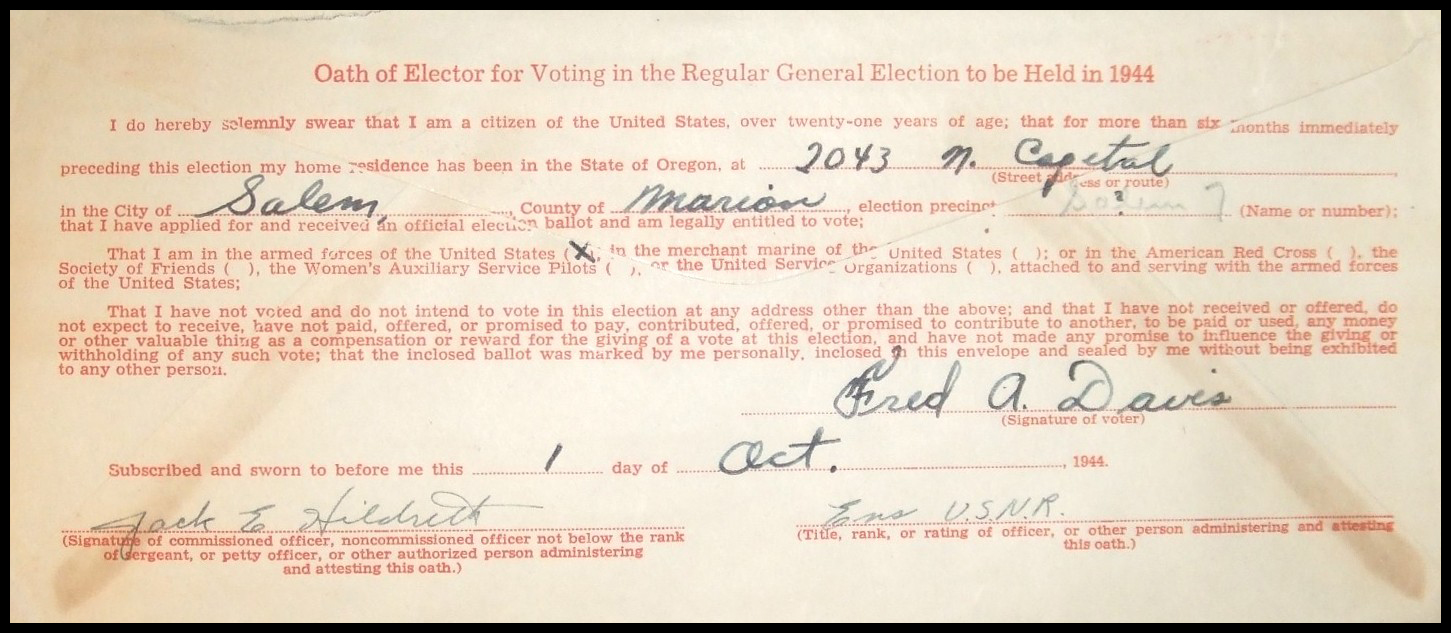 Oath of Elector for Voting in the Regular General Election to be Held in 1944
I do hereby solemnly swear that I am a citizen of the United States, over twenty-one years of age; that for more than six months immediately
preceding this election my home residence has been in the State of Oregon, at 2043 N. Capetal
(Street address or route)
in the City of Salem, County of Marion, election precinct Salem ? (Name or number);
that I have applied for and received an official election ballot and am legally entitled to vote;
That I am in the armed forces of the United States (X); in the merchant marine of the United States ( ); or in the American Red Cross ( ), the
Society of Friends ( ), the Women's Auxiliary Service Pilots ( ), or the United Service Organizations ( ), attached to and serving with the armed forces
of the United States;
That I have not voted and do not intend to vote in this election at any address other than the above; and that I have not received or offered, do
not expect to receive, have not paid, offered, or promised to pay, contributed, offered, or promised to contribute to another, to be paid or used, any money
or other valuable thing as a compensation or reward for the giving of a vote at this election, and have not made any promise to influence the giving or
withholding of any such vote; that the inclosed ballot was marked by me personally, inclosed in this envelope and sealed by me without being exhibited
to any other person.
Fred A. Davis
(Signature of voter)
Subscribed and sworn to before me this 1 day of Oct. , 1944.
Jack E Hildreth Ens U.S.N.R.
(Signature of commissioned officer, noncommissioned officer not below the rank
of sergeant, or petty officer, or other authorized person administering
and attesting this oath.)
(Title, rank, or rating of officer, or other person administering and attesting
this oath.)